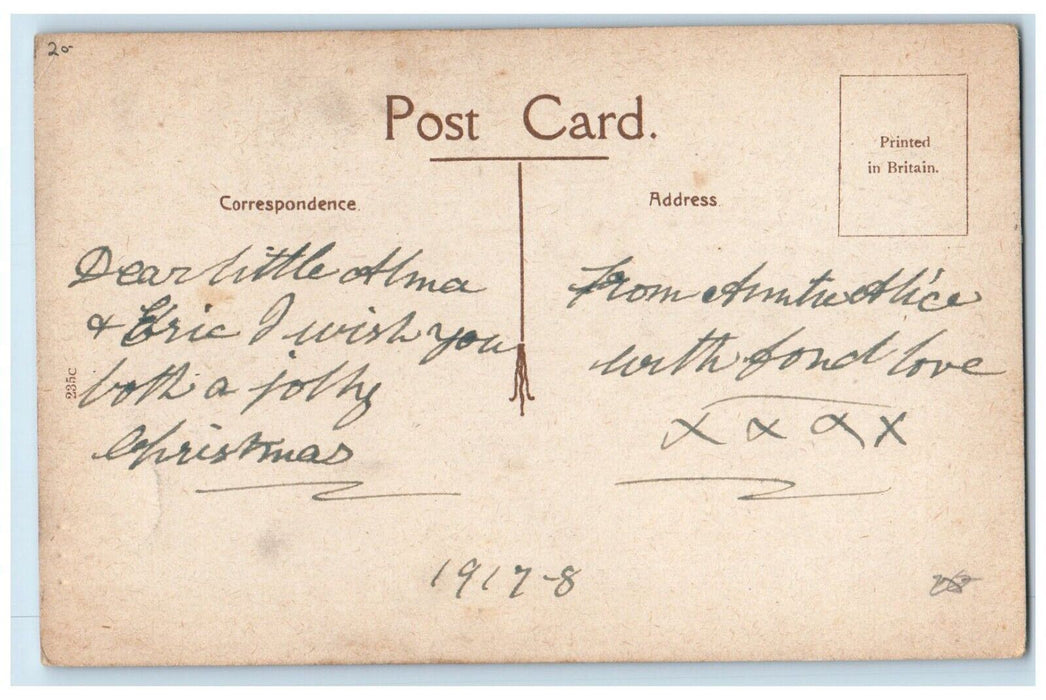 20
Post Card.
Printed
in Britain.
Correspondence.
Address.
Dear little Alma
& Eric I wish you
both a jolly
Christmas
235C
From Auntie Alice
with fond love
x x x x
1917-8